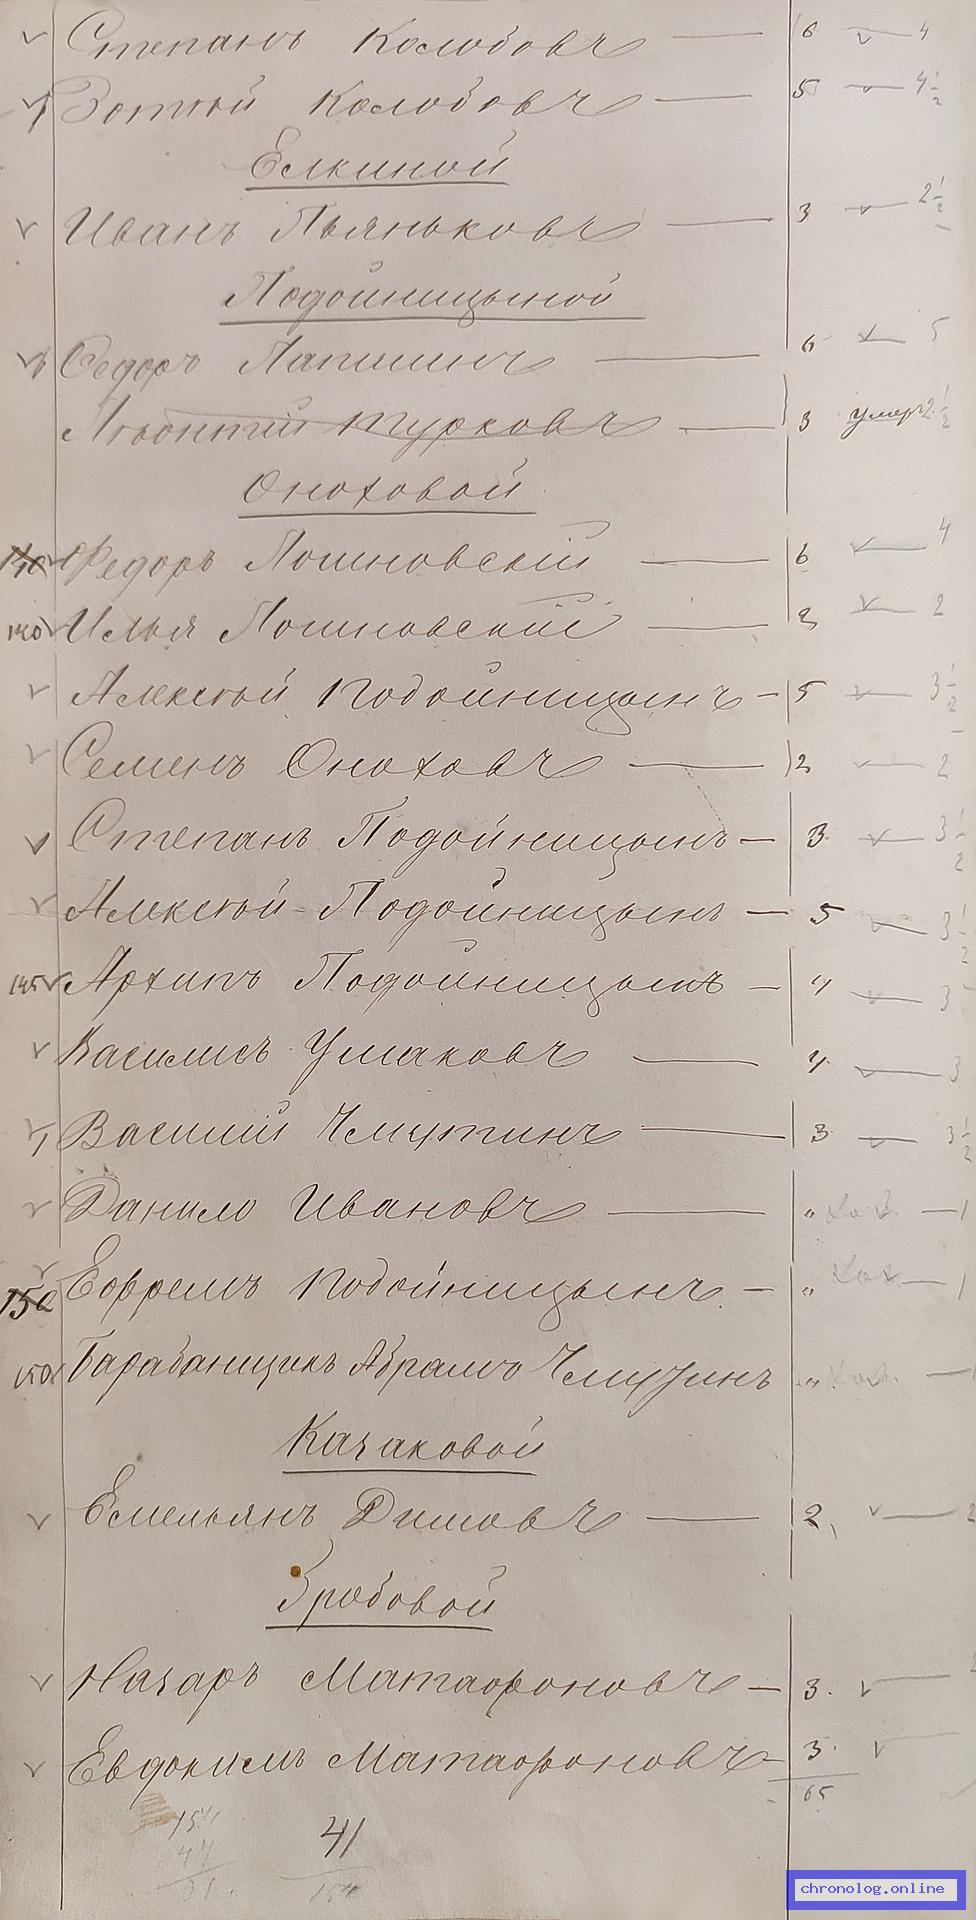 Степанъ Колобовъ — 6 v — 4
Зотей Колобовъ — 5 v — 4 1/2
Елкиной
Иванъ Пьяньковъ — 3 v — 2 1/2
Подойницыной
Федоръ Лапшинъ — 6 v — 5
Леонтий Турковъ — 3 умеръ 2 1/2
Оноховой
140 Федоръ Лошновскій — 6 v — 4
140 Илья Лошновскій — 2 v — 2
Алексѣй Подойницынъ — 5 v — 3 1/2
Семенъ Оноховъ — 2 v — 2
Степанъ Подойницынъ — 3 v — 3 1/2
Алексѣй Подойницынъ — 5 v — 3 1/2
145 Архипъ Подойницынъ — 4 v — 3
Василисъ Ушаковъ — 4 v — 3
Василий Чмутинъ — 3 v — 3 1/2
Данило Ивановъ — " — 1
150 Ефремъ Подойницынъ — " — 1
150 Барабанщикъ Абрамъ Чмутинъ "
Казаковой
Емельянъ Димовъ — 2 v — 2
Гробовой
Назаръ Матафоновъ — 3. v
Евдокимъ Матафоновъ — 3. v
65
41
154
chronolog.online